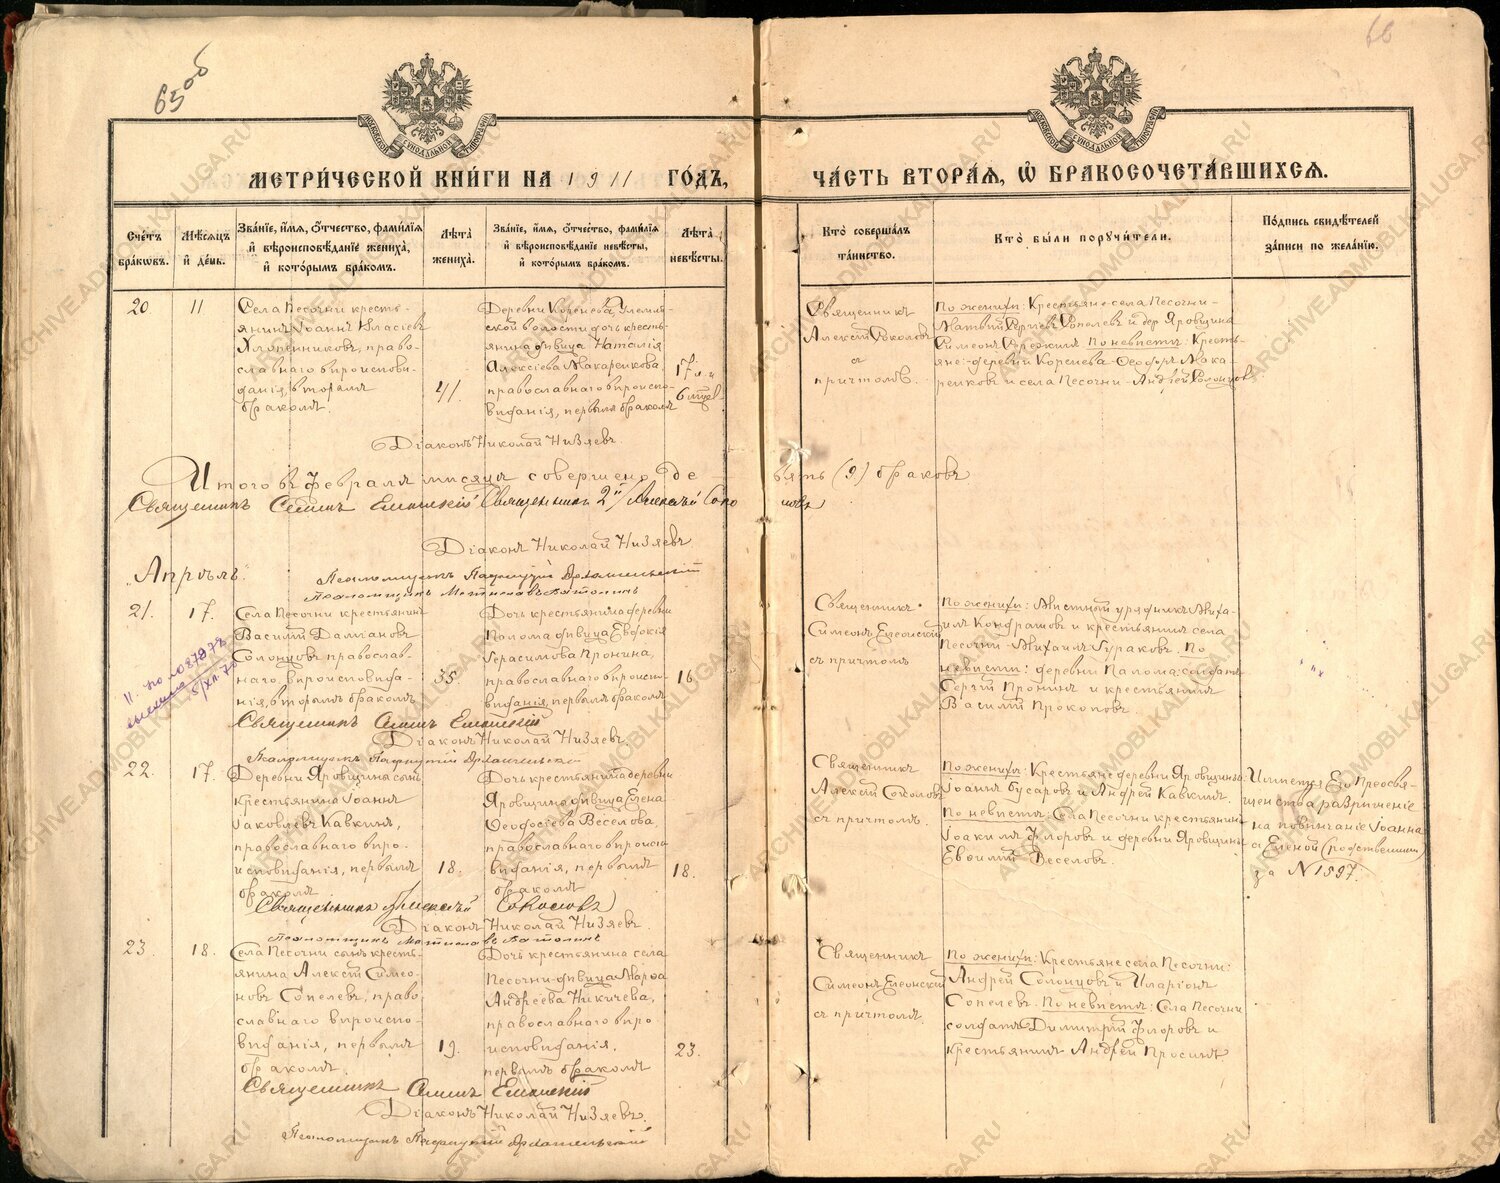 65об
66
МЕТРИЧЕСКОЙ КНИГИ НА 1911 ГОДЪ,
ЧАСТЬ ВТОРАЯ, Ѡ БРАКОСОЧЕТАВШИХСЯ.
Счетъ браковъ.
Мѣсяцъ и день.
Званіе, имя, отчество, фамилія
и вѣроисповѣданіе жениха,
и которымъ бракомъ.
Лѣта жениха.
Званіе, имя, отчество, фамилія
и вѣроисповѣданіе невѣсты,
и которымъ бракомъ.
Лѣта невѣсты.
Кто совершалъ
таинство.
Кто были поручители.
Подпись свидѣтелей
записи по желанію.
20.
11
Села Песочни кресть-
янинъ Іоаннъ Власіевъ
Хлопенниковъ, право-
славнаго вѣроиспові-
данія, вторымъ
бракомъ.
41.
Деревни Коренева
ской волости дочь кресть-
янина дѣвица Наталія
Алексѣева Макаренкова,
православнаго вѣроиспо-
вѣданія, первымъ бракомъ
17 л. и
6 мѣс.
Священникъ
Алексій Соколовъ
съ
причтомъ.
По женихѣ: Крестьяне села Песочни-
Матвій Сергіевъ Сопелевъ и дер Яровщина
Симеонъ По невѣстѣ: Кресть-
яне: деревни Коренева-Ѳеодоръ Мака-
ренковъ и села Песочни-Андрей Солонцов
Діаконъ Николай Низяевъ.
Итого въ Февралѣ мѣсяцѣ совершено де
вять (9) браковъ
Священникъ Симеонъ Елеонскій Священникъ 2й Алексѣй Соко
ловъ
Діаконъ Николай Низяевъ
„Апрѣль"
Псаломщикъ
Псаломщикъ
21.
17.
Села Песочни крестьянинъ
Василій Даміановъ
Солонцовъ православ-
наго вѣроисповѣда-
нія, вторымъ бракомъ
35.
Дочь крестьянина деревни
Палома дѣвица Евдокія
Герасимова Пронина,
православнаго вѣроиспо-
вѣданія, первымъ бракомъ
16
Священникъ
Симеонъ Елеонскій
съ причтомъ
По женихѣ: Мѣстный урядникъ Миха-
илъ Кондрашов и крестьянинъ села
Песочни Михаилъ Бураковъ. По
невѣстѣ: деревни Палома солдатъ
Сергій Пронинъ и крестьянинъ
Василій Прокоповъ.
Священникъ Симеонъ Елеонскій
Діаконъ Николай Низяевъ.
Псаломщикъ
22.
17.
Деревни Яровщина сынъ
крестьянина Іоаннъ
Іаковлевъ Кавкинъ,
православнаго вѣро-
исповѣданія, первымъ
бракомъ
18.
Дочь крестьянина деревни
Яровщина дѣвица Елена
Ѳеодосіева Веселова
православнаго вѣроиспо
вѣданія, первымъ
бракомъ
18.
Священникъ
Алексій Соколовъ
съ причтомъ.
По женихѣ: Крестьяне деревни Яровщина
Іоаннъ Гусаровъ и Андрей Кавкинъ.
По невѣстѣ: Села Песочни крестьянин
Іоакимъ Флоровъ и деревни Яровщины
Евѳимій Веселовъ.
Имѣется Его Преосвя-
щенства разрѣшеніе
на повѣнчаніе Іоанна
съ Еленой (родственники)
за №1597.
Священникъ Алексѣй Соколовъ
Діаконъ Николай Низяевъ.
Псаломщикъ
23.
18.
Села Песочни сынъ кресть-
янина Алексѣй Симео-
новъ Сопелевъ, право-
славнаго вѣроиспо-
вѣданія, первымъ
бракомъ.
19.
Дочь крестьянина села
Песочни-дѣвица Марѳа
Андреева Никичева,
православнаго вѣро-
исповѣданія,
первымъ бракомъ
23.
Священникъ
Симеонъ Елеонскій
съ причтомъ
По женихѣ: Крестьяне села Песочни:
Андрей Солонцовъ и Иларіонъ
Сопелевъ. По невѣстѣ: Села Песочни
солдатъ Димитрій Флоровъ и
крестьянинъ Андрей Просинъ
Священникъ Симеонъ Елеонскій
Діаконъ Николай Низяевъ.
Псаломщикъ
ARCHIVE.ADMOBLKALUGA.RU